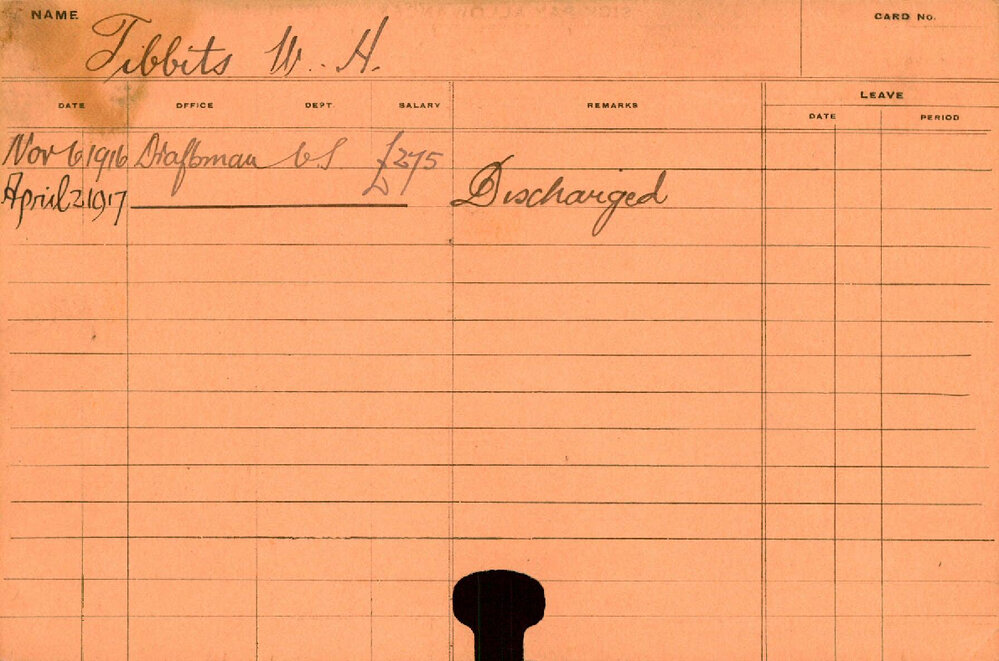 NAME Tibbits W. H. CARD No.
DATE OFFICE DEPT. SALARY REMARKS LEAVE
DATE PERIOD
Nov 6 1916 Draftsman £275
April 2 1917 Discharged